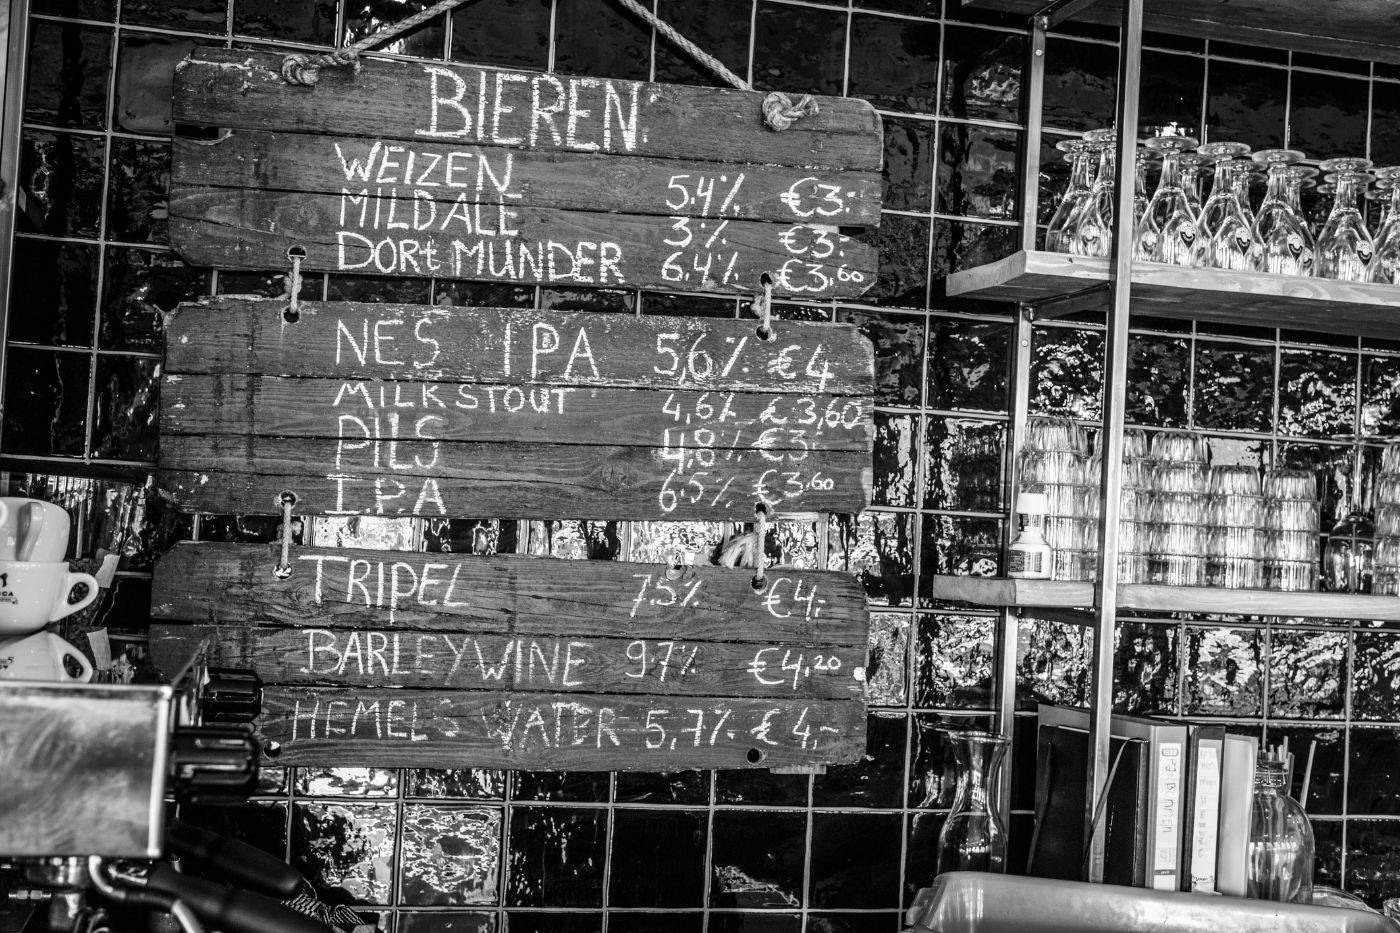 BIEREN
WEIZEN 5.4% €3.-
MILD ALE 3% €3.-
DORtMUNDER 6,4% €3,60
NES IPA 5,6% €4
MILKSTOUT 4,6% €3,60
PILS 4,8% €3-
I.P.A 6.5% €3,60
TRIPEL 7.5% €4,-
BARLEYWINE 9.7% €4,20
HEMELS WATER 5,7% €4,-